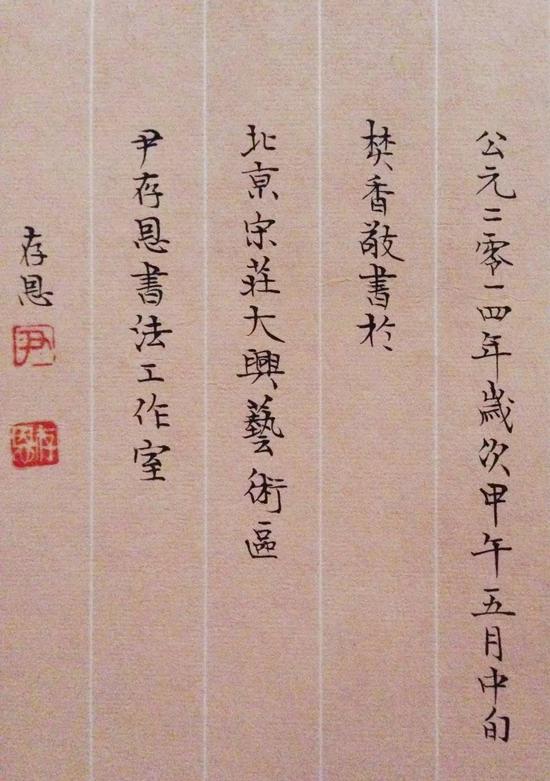 公元二零一四年歲次甲午五月中旬
焚香敬書於
北京宋莊大興藝術區
尹存恩書法工作室
存恩
尹
存恩